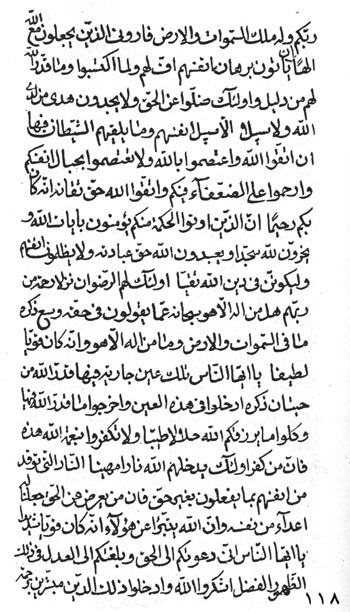 الله
ربكم وله ملك السموات والارض فاروني الذين يجعلون مع
الها ان ياتون برهان انفسهم اف لهم ولما اكتسبوا وما قدر الله
لهم من دليل واولئك ضلوا عن الحق ولا يجدون هدى من لدى
الله ولا سبيل الا سبيل انفسهم وما يلقيهم الشيطان فيها
ان اتقوا الله واعتصموا بالله ولا تعتصموا بحبال انفسكم
وارحموا على الضعفآء منكم واتقوا الله حق تقاته انه كان
بكم رحيما ان الذين اوتوا الحكمة منكم يؤمنون بايات الله و
يخرون لله سجدا ويعبدون الله حق عبادته ولا يظلمون انفسهم
وليكونن في دين الله تقيا اولئك لهم الرضوان نزلا من
ربهم هل من اله الا هو سبحانه عما يقولون في حقه وسع ذكره
ما في السموات والارض وما من اله الا هو وانه كان قويا
لطيفا يا ايها الناس تلك عين جارية وفيها قدر الله من
حيتان ذكره ادخلوا في هذه العين واخرجوا ما قدر الله فيها
وكلوا ما يرزقكم الله حلالا طيبا ولا تكفروا بنعمة الله هذه
فان من كفر اولئك يدخلهم الله نارا مهينا النار التي توقد
من انفسهم بما يفعلون بغير حق فان من يعرض عن الحق جعلنا له
اعدآء من نفسه وان الله يتبرا عن هؤلاء انه كان قويا
يا ايها الناس اني دعوتكم الى الحق وبلغتكم الى العدل في ذلك
الظهور والفضل اشكروا الله وادخلوا في ذلك الدين مبشرين برحمة
١١٨